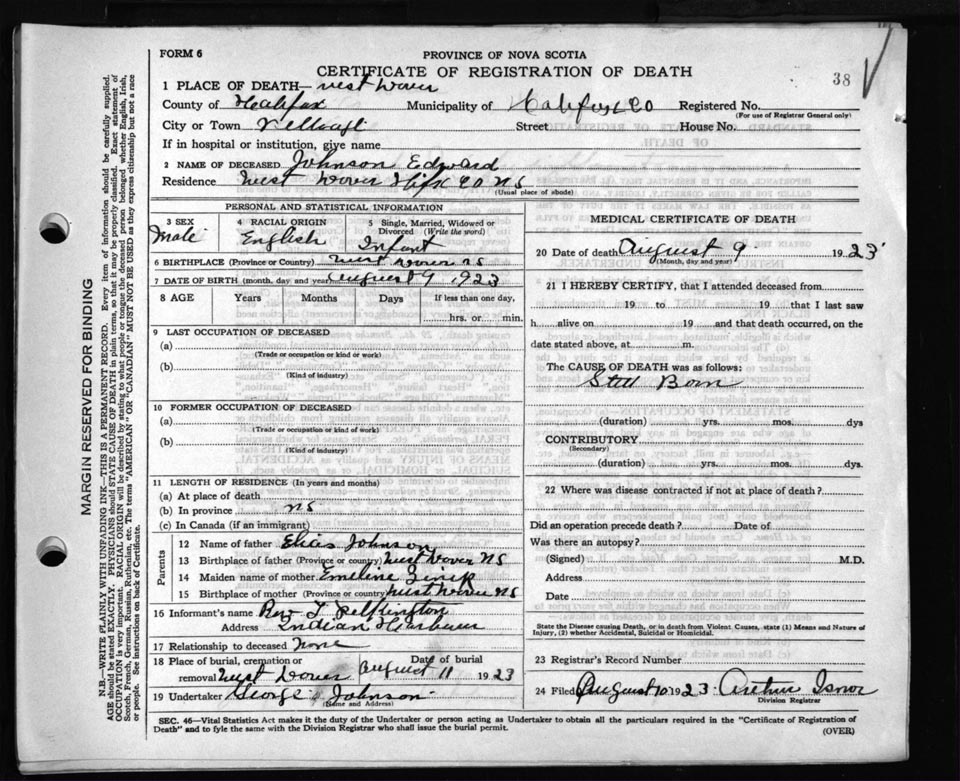 FORM 6
PROVINCE OF NOVA SCOTIA
CERTIFICATE OF REGISTRATION OF DEATH
38
1 PLACE OF DEATH— West Dover
County of Halifax Municipality of Halifax Co Registered No.
(For use of Registrar General only)
City or Town Street House No.
If in hospital or institution, give name
2 NAME OF DECEASED Johnson Edward
Residence West Dover Hfx Co NS
(Usual place of abode)
PERSONAL AND STATISTICAL INFORMATION
3 SEX Male
4 RACIAL ORIGIN English
5 Single, Married, Widowed or Divorced (Write the word) Infant
6 BIRTHPLACE (Province or Country) West Dover NS
7 DATE OF BIRTH (month, day and year) August 9 1923
8 AGE Years Months Days If less than one day,
hrs. or min.
9 LAST OCCUPATION OF DECEASED
(a)
(Trade or occupation or kind or work)
(b)
(Kind of industry)
10 FORMER OCCUPATION OF DECEASED
(a)
(Trade or occupation or kind of work)
(b)
(Kind of industry)
11 LENGTH OF RESIDENCE (In years and months)
(a) At place of death
(b) In province NS
(c) In Canada (if an immigrant)
Parents
12 Name of father Johnson
13 Birthplace of father (Province or country) West Dover NS
14 Maiden name of mother Emeline
15 Birthplace of mother (Province or country) West Dover NS
16 Informant's name Rev T
Address Indian Harbour
17 Relationship to deceased None
18 Place of burial, cremation or removal West Dover Date of burial August 11 1923
19 Undertaker George Johnson
(Name and Address)
MEDICAL CERTIFICATE OF DEATH
20 Date of death August 9 1923
(Month, day and year)
21 I HEREBY CERTIFY, that I attended deceased from
19 to 19 that I last saw
h alive on 19 and that death occurred, on the
date stated above, at m.
The CAUSE OF DEATH was as follows:
Still Born
(duration) yrs. mos. dys
CONTRIBUTORY
(Secondary)
(duration) yrs. mos. dys.
22 Where was disease contracted if not at place of death?
Did an operation precede death? Date of
Was there an autopsy?
(Signed) M.D.
Address
Date
State the Disease causing Death, or in death from Violent Causes, state (1) Means and Nature of
Injury, (2) whether Accidental, Suicidal or Homicidal.
23 Registrar's Record Number
24 Filed August 10 1923 Arthur Isnor
Division Registrar
SEC. 46—Vital Statistics Act makes it the duty of the Undertaker or person acting as Undertaker to obtain all the particulars required in the "Certificate of Registration of
Death" and to fyle the same with the Division Registrar who shall issue the burial permit.
(OVER)
MARGIN RESERVED FOR BINDING
N.B.—WRITE PLAINLY WITH UNFADING INK—THIS IS A PERMANENT RECORD. Every item of information should be carefully supplied.
AGE should be stated EXACTLY. PHYSICIANS should STATE CAUSE OF DEATH in plain terms, so that it may be properly classified. Exact statement of
OCCUPATION is very important. RACIAL ORIGIN will be described by stating to what people or tongue the deceased person belonged whether English, Irish,
Scotch, French, German, Russian, Ruthenian, etc. The terms "AMERICAN" or "CANADIAN" MUST NOT BE USED as they express citizenship but not a race
or people. See instructions on back of Certificate.